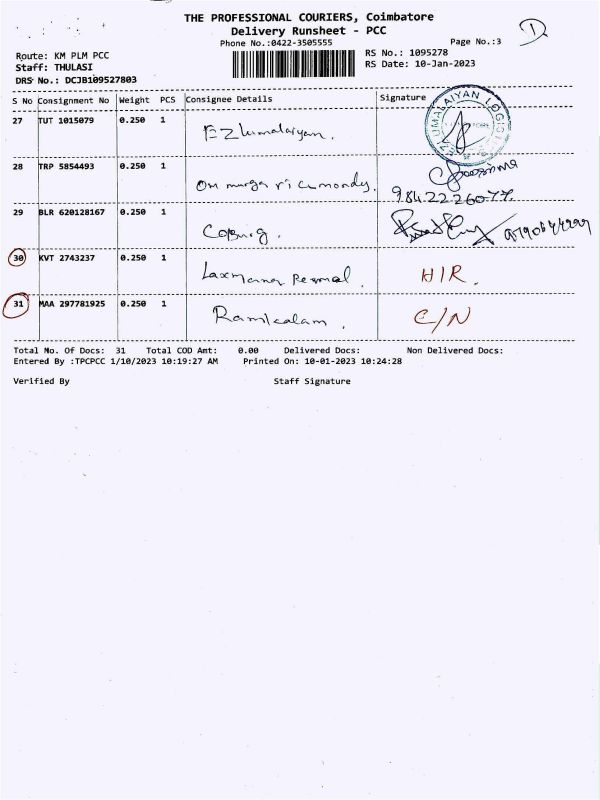 THE PROFESSIONAL COURIERS, Coimbatore
Delivery Runsheet - PCC
Phone No.:0422-3505555 Page No.:3
Route: KM PLM PCC RS No.: 1095278
Staff: THULASI RS Date: 10-Jan-2023
DRS No.: DCJB109527803
S No Consignment No Weight PCS Consignee Details Signature
27 TUT 1015079 0.250 1 EZhumalaiyan.
28 TRP 5854493 0.250 1 Om muruga ricemondy.
9842226077.
29 BLR 620128167 0.250 1
30 KVT 2743237 0.250 1 H/R.
31 MAA 297781925 0.250 1 C/N
Total No. Of Docs: 31 Total COD Amt: 0.00 Delivered Docs: Non Delivered Docs:
Entered By :TPCPCC 1/10/2023 10:19:27 AM Printed On: 10-01-2023 10:24:28
Verified By Staff Signature